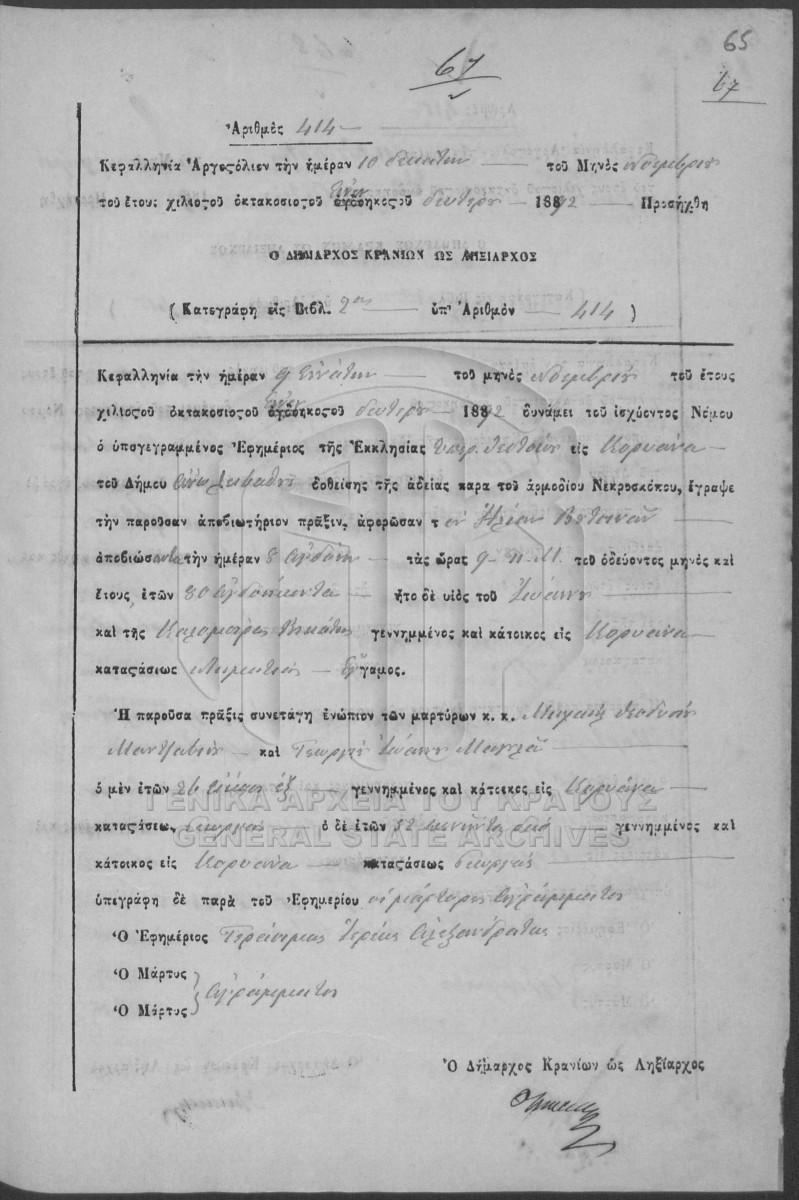 65
67
67
Ἀριθμὸς 414
Κεφαλληνία Ἀργοςόλιον τὴν ἡμέραν 10 δεκάτην τοῦ Μηνὸς Νοεμβρίου
τοῦ ἔτους χιλιοςοῦ ὀκτακοσιοςοῦ ὀγδοηκοςοῦ δευτέρου 1892 Προσήχθη
Ο ΔΗΜΑΡΧΟΣ ΚΡΑΝΙΩΝ ΩΣ ΛΗΞΙΑΡΧΟΣ
(Κατεγράφη εἰς Βιβλ. 2ον ὑπ' Ἀριθμὸν 414)
Κεφαλληνία τὴν ἡμέραν 9 ἐννάτην τοῦ μηνὸς Νοεμβρίου τοῦ ἔτους
χιλιοςοῦ ὀκτακοσιοςοῦ ὀγδοηκοςοῦ δευτέρου 1892 δυνάμει τοῦ ἰσχύοντος Νόμου
ὁ ὑπογεγραμμένος Ἐφημέριος τῆς Ἐκκλησίας εἰς Κορυάνα
τοῦ Δήμου δοθείσης τῆς ἀδείας παρα τοῦ ἁρμοδίου Νεκροσκόπου, ἔγραψε
τὴν παροῦσαν ἀποβιωτήριον πρᾶξιν, ἀφορῶσαν τον Ἠλίαν
ἀποβιώσαντα τὴν ἡμέραν 8 ὀγδόην τὰς ὥρας 9 π.Μ. τοῦ ὁδεύοντος μηνὸς καὶ
ἔτους, ἐτῶν 80 ὀγδοήκοντα ἦτο δὲ υἱὸς τοῦ Ἰωάννη
καὶ τῆς γεννημμένος καὶ κάτοικος εἰς Κορυάνα
καταςάσεως Ἔγγαμος.
Ἡ παροῦσα πρᾶξις συνετάγη ἐνώπιον τῶν μαρτύρων κ. κ. Μιχαὴλ
καὶ Γεωργίου Ἰωάννη
ὁ μὲν ἐτῶν 26 εἴκοσι ἕξ γεννημμένος καὶ κάτοικος εἰς Κορυάνα
ΓΕΝΙΚΑ ΑΡΧΕΙΑ ΤΟΥ ΚΡΑΤΟΥΣ
καταςάσεως Γεωργὸς ὁ δὲ ἐτῶν 52 πενήντα δύο γεννημμένος καὶ
GENERAL STATE ARCHIVES
κάτοικος εἰς Κορυάνα καταςάσεως Γεωργὸς
ὑπεγράφη δὲ παρὰ τοῦ Ἐφημερίου οἱ μάρτυρες ἀγράμματοι
Ὁ Ἐφημέριος Γεράσιμος Ἱερεὺς Ἀλεξανδράτος
Ὁ Μάρτυς
Ὁ Μάρτυς ἀγράμματοι
Ὁ Δήμαρχος Κρανίων ὡς Ληξίαρχος